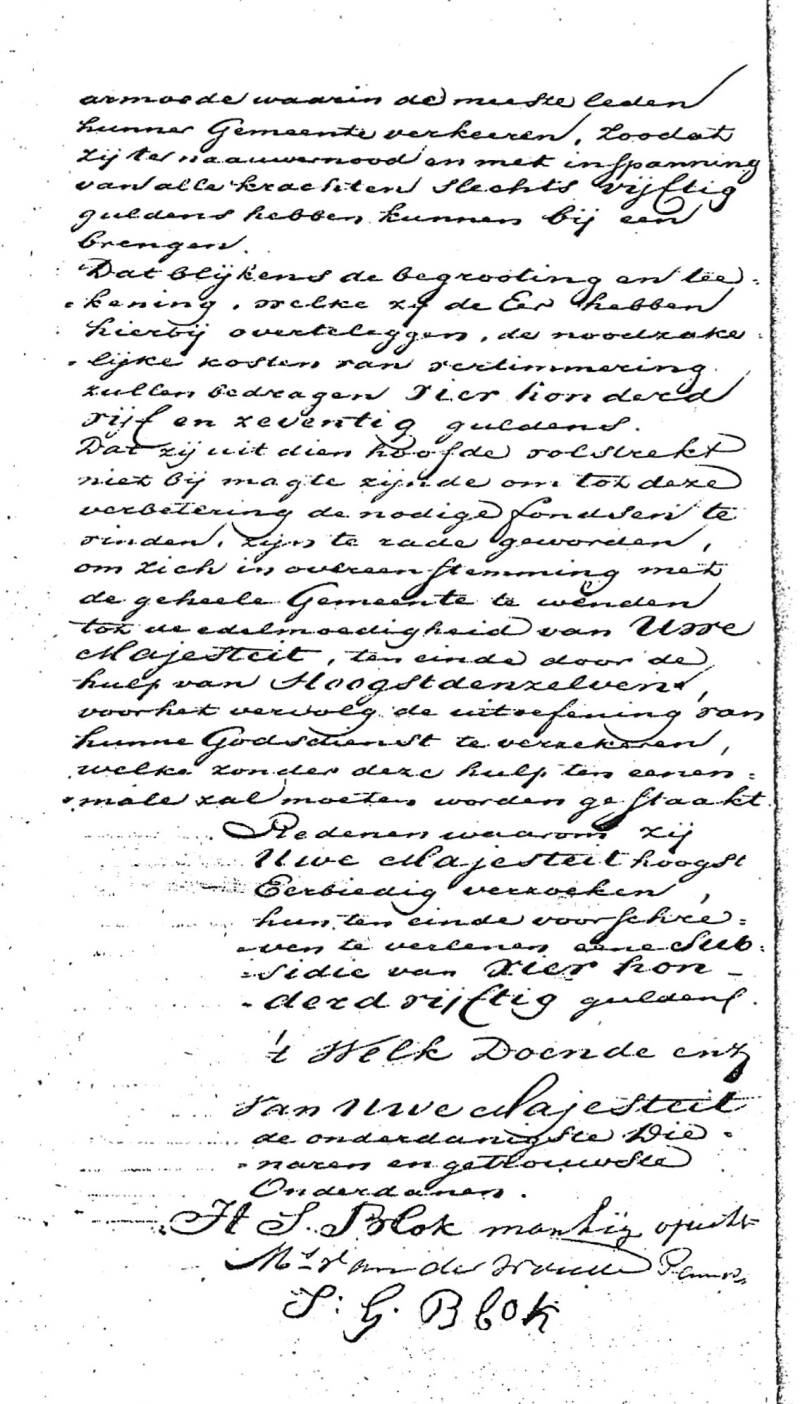 armoede waarin de meeste leden
hunner Gemeente verkeeren, zoodat
zij ter naauwernood en met inspanning
van alle krachten slechts vijftig
guldens hebben kunnen bij een
brengen.
Dat blijkens de begrooting en tee-
kening, welke zij de Eer hebben
hierbij overteleggen, de noodzake-
-lijke kosten van vertimmering
zullen bedragen Vier honderd
vijf en zeventig guldens.
Dat zij uit dien hoofde volstrekt
niet bij magte zijnde om tot deze
verbetering de nodige fondsen te
vinden, zijn te rade geworden,
om zich in overeenstemming met
de geheele Gemeente te wenden
tot de edelmoedigheid van Uwe
Majesteit, ten einde door de
hulp van Hoogstdenzelven,
voor het vervolg de uitoefening van
hunne Godsdienst te verzekeren,
welke zonder deze hulp ten eenen=
male zal moeten worden gestaakt
Redenen waarom zij
Uwe Majesteit hoogst
Eerbiedig verzoeken,
hun ten einde voorschre=
-ven te verlenen eene Sub=
-sidie van Vier hon-
-derd vijftig guldens.
't Welk Doende enz
Van Uwe Majesteit
de onderdanigste Die-
-naren en getrouwste
Onderdanen.
H S. Blok
Ms van der
S. G. Blok